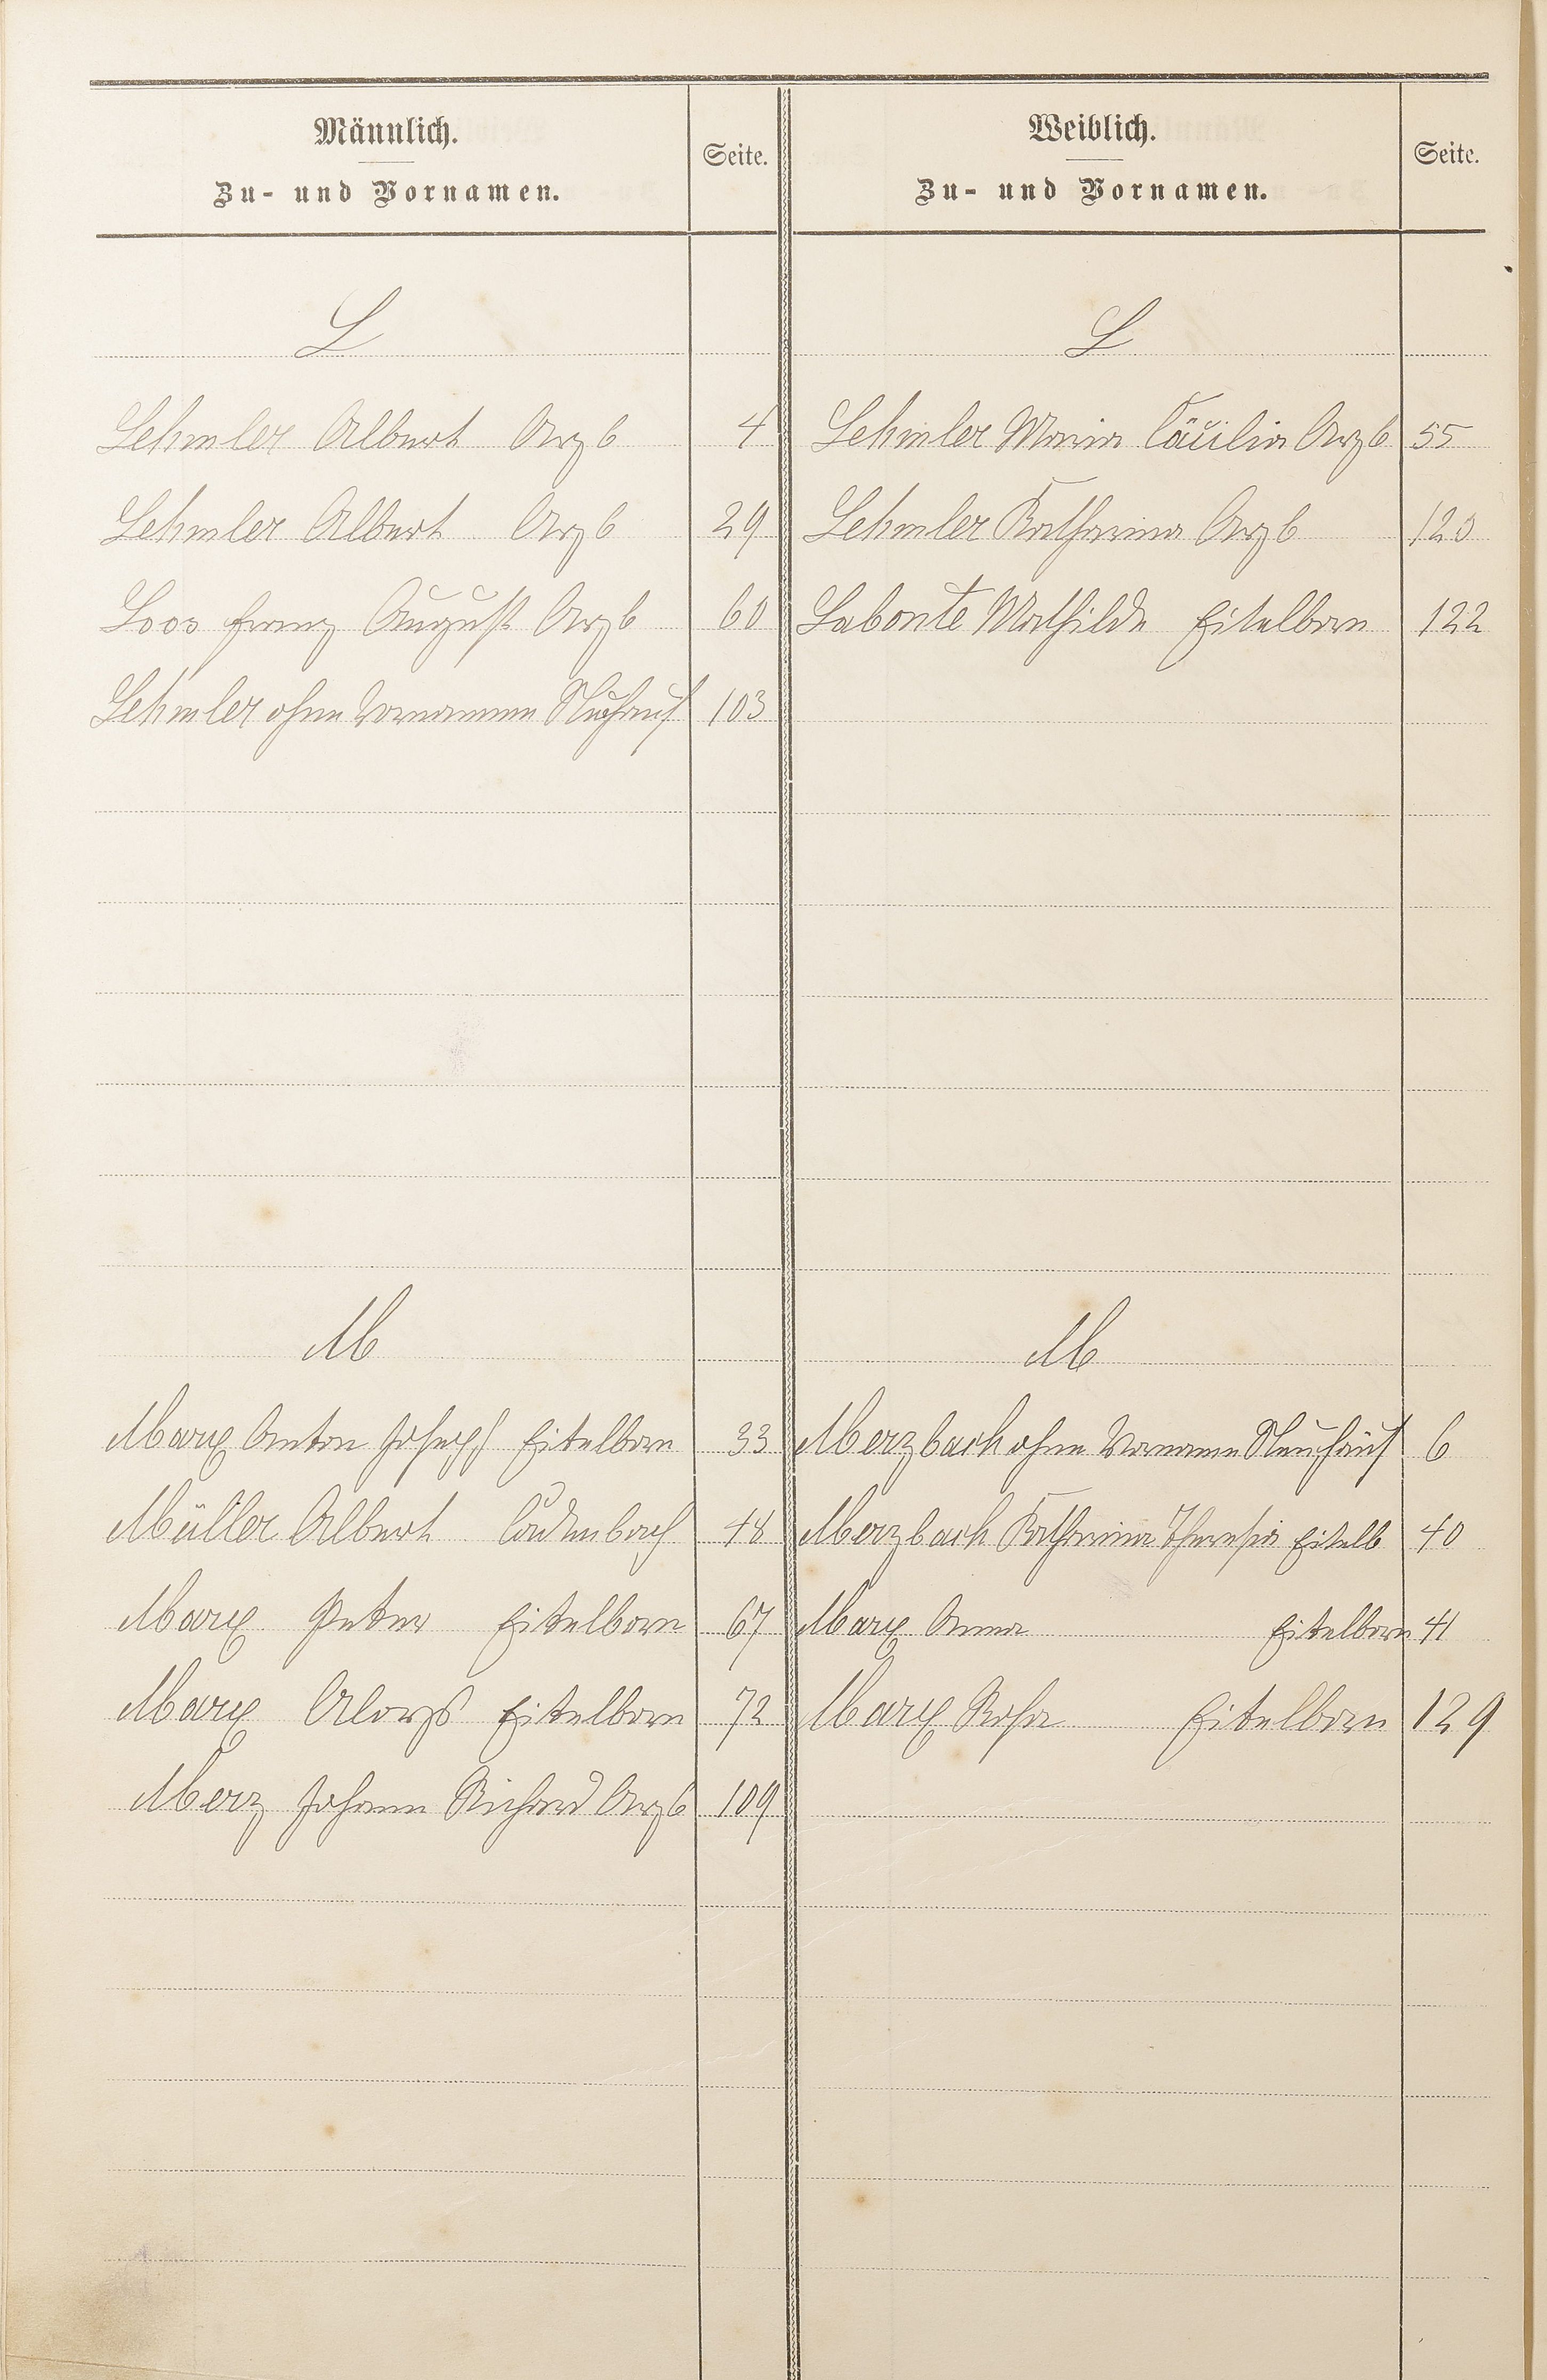 Männlich.
Zu- und Vornamen.
Seite.
L
Lehmler Albert Arzb 4
Lehmler Albert Arzb 29
Loos Franz August Arzb 60
Lehmler ohne Vornamen Neuhäusl 103
M
Marx Anton Joseph Eitelborn 33
Müller Albert Cadenbach 48
Marx Peter Eitelborn 67
Marx Aloys Eitelborn 72
Merz Johann Richard Arzb 109
Weiblich.
Zu- und Vornamen.
Seite.
L
Lehmler Maria Cäcilia Arzb 55
Lehmler Katharina Arzb
Labonte Mathilde Eitelborn 122
M
Merzbach ohne Vorname Neuhäusl 6
Merzbach Katharina Theresia Eitelb 40
Marx Anna Eitelborn 41
Marx Rosa Eitelborn 129